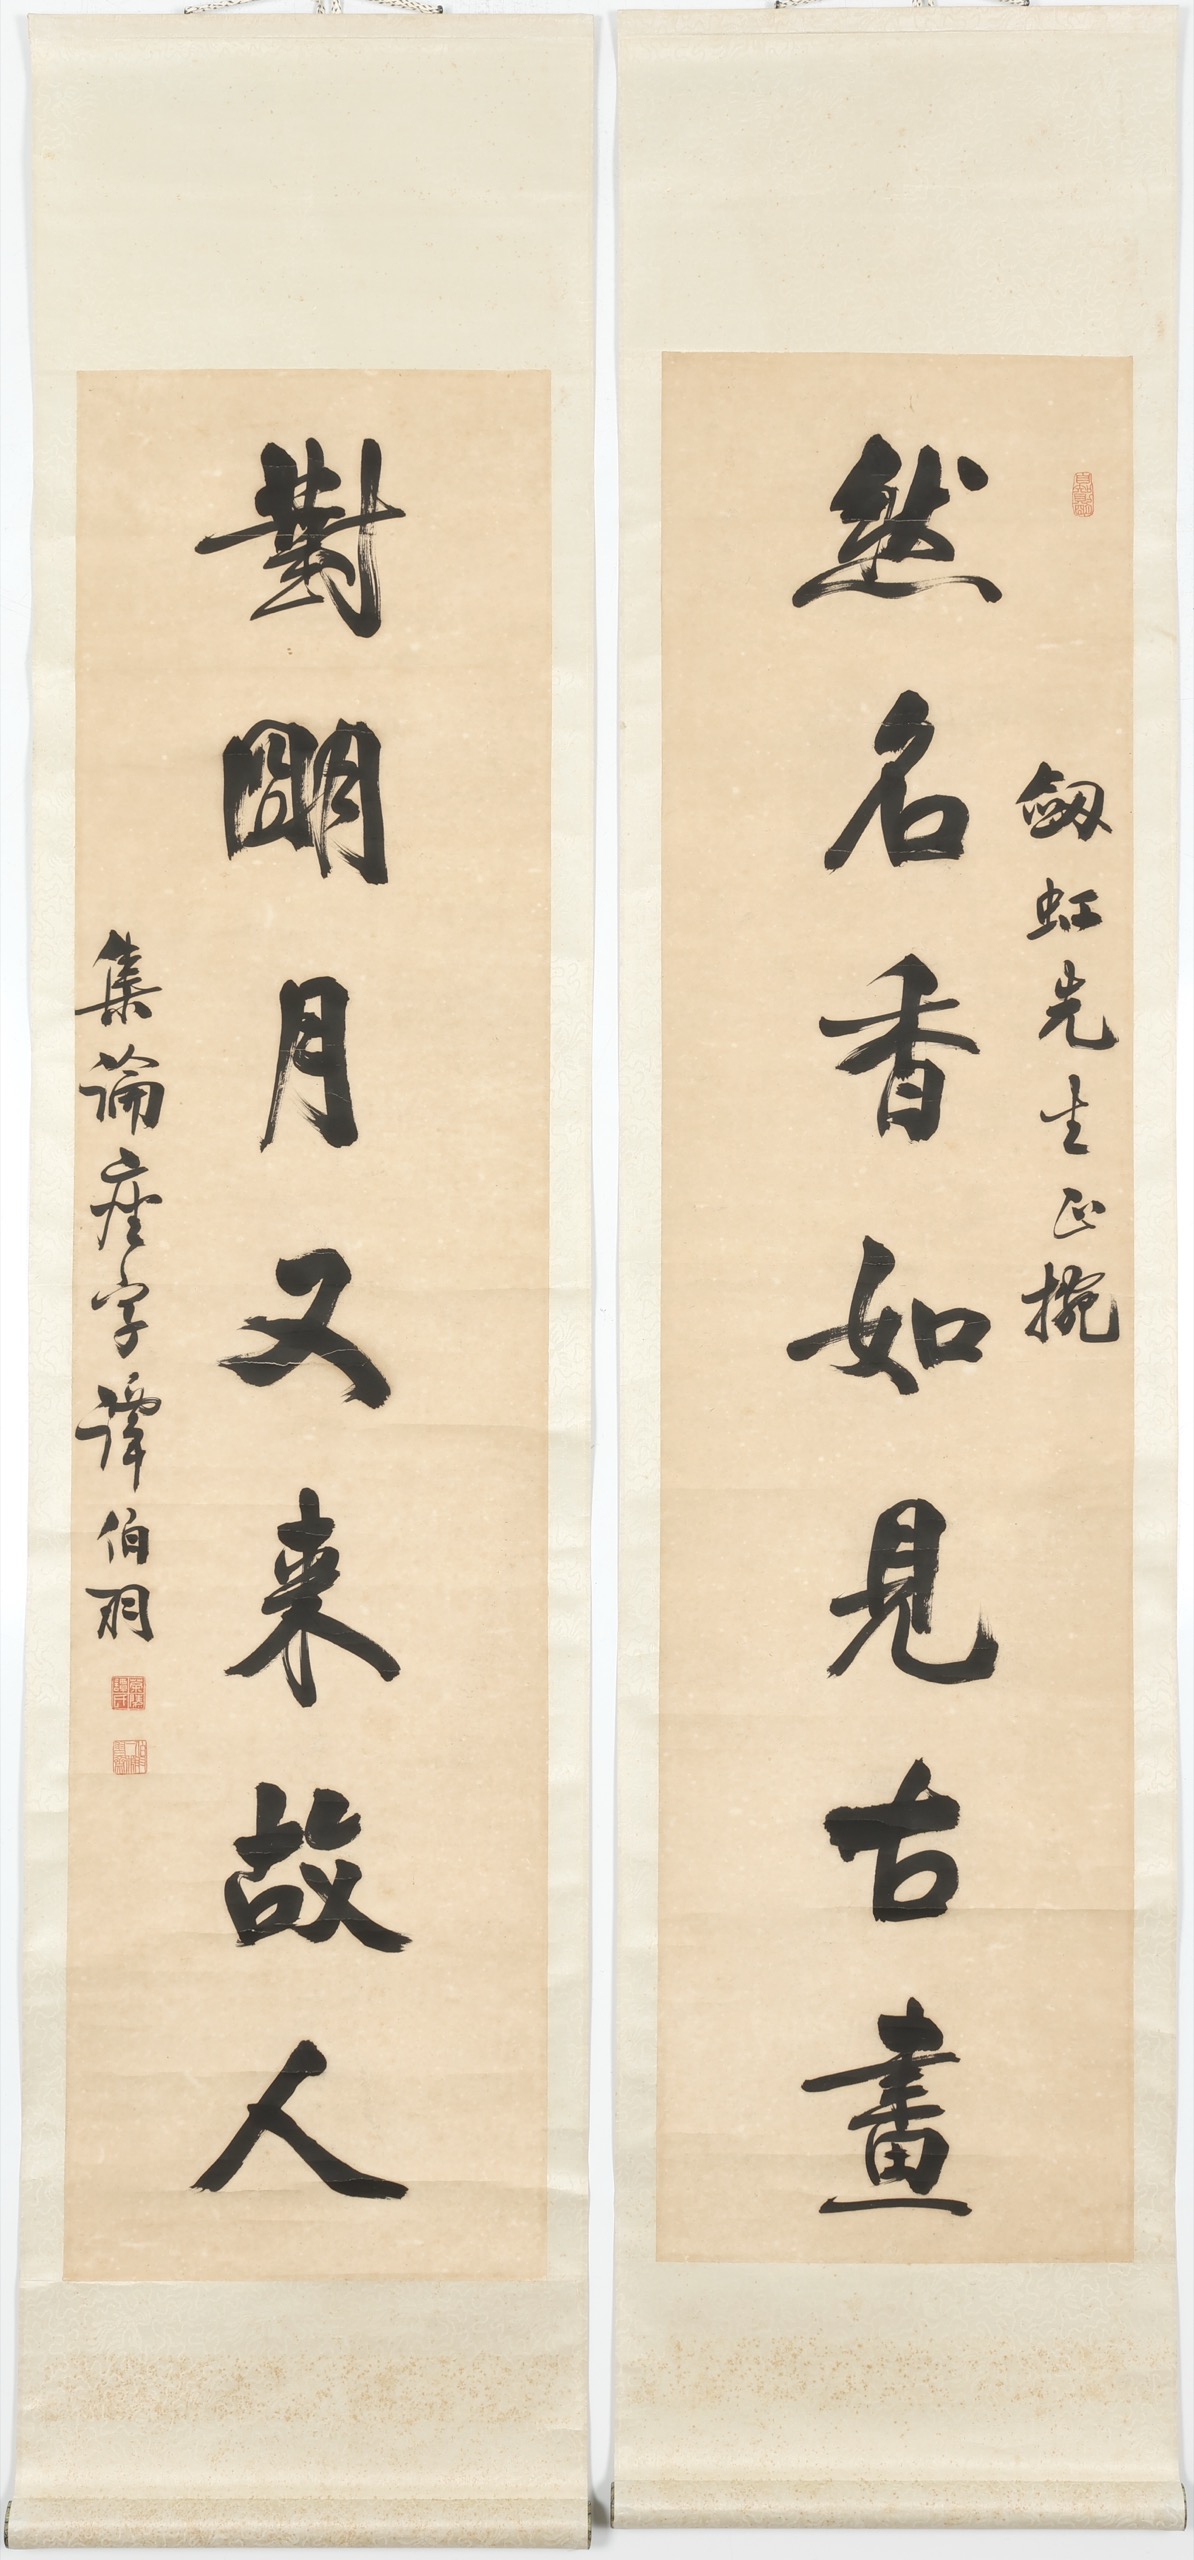 然名香如見古畫
劔虹先生正腕
對朙月又来故人
集論座字譚伯羽